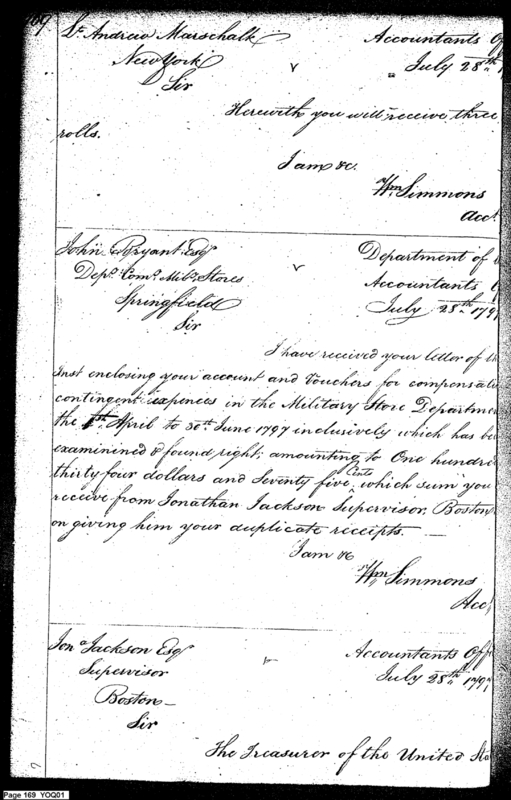 169
Lt. Andrew Marschalk
Accountants Off
New York
July 28th 1
Sir
Herewith you will receive three
rolls.
I am &c.
Wm Simmons
Acct
John Bryant Esqr
Department of
Depy. Comy. Mily. Stores
Accountants
Springfield
July 28th 1797
Sir
I have received your letter of th
Inst enclosing your account and Vouchers for compensati
contingent expences in the Military Store Departmen
the 1st April to 30th June 1797 inclusively which has be
examinined & found right; amounting to One hundre
thirty four dollars and Seventy five Cents which sum you
receive from Jonathan Jackson Supervisor, Boston
on giving him your duplicate receipts. —
I am &c
Wm Simmons
Acct
Jona Jackson Esqr
Accountants Offi
Supervisor
July 28th 1797
Boston —
Sir
The Treasurer of the United Sta
Page 169 YOQ01